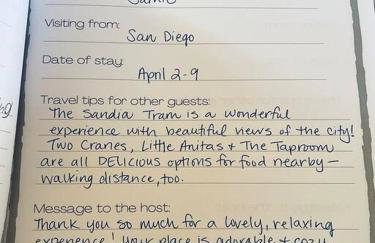 Visiting from:
San Diego
Date of stay:
April 2-9
Travel tips for other guests:
The Sandia Tram is a wonderful
experience with beautiful views of the city!
Two Cranes, Little Anitas + The Taproom
are all DELICIOUS options for food nearby—
walking distance, too.
Message to the host:
Thank you so much for a lovely, relaxing
experience! Your place is adorable + cozy